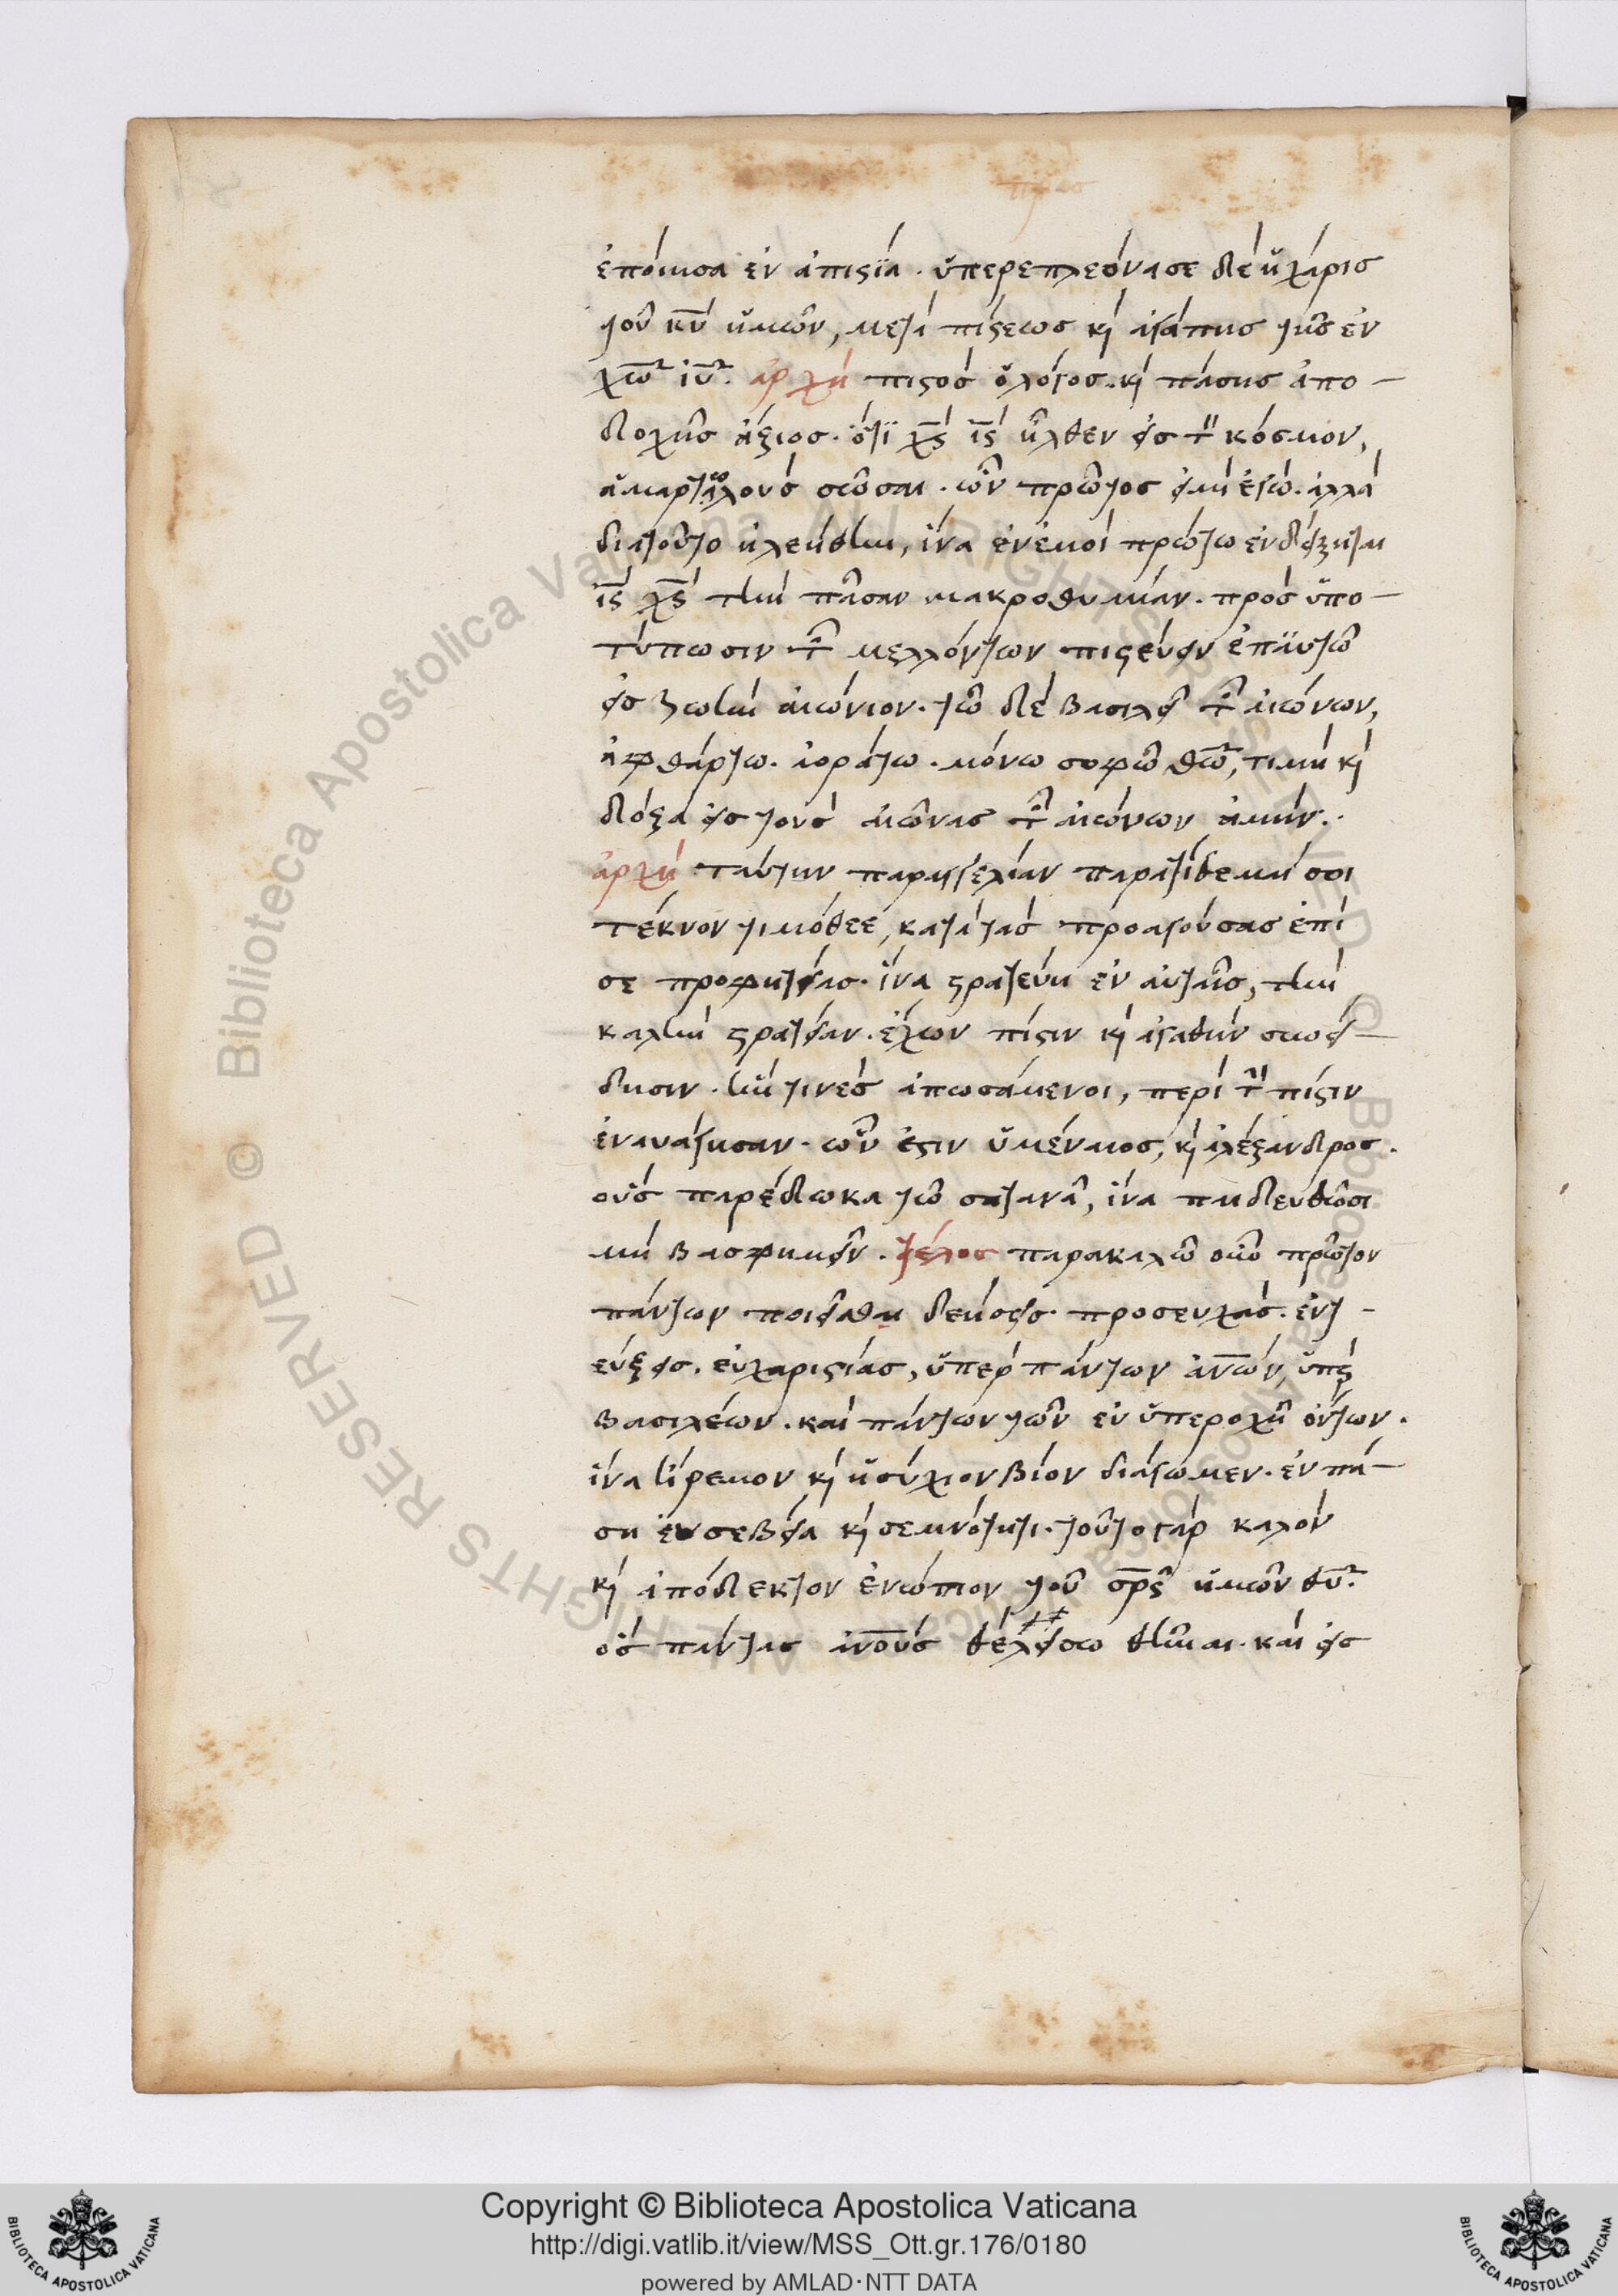 ἐποίησα ἐν ἀπιστϊα· ὑπερεπλεόνασε δὲ ἡ χάρισ
τοῦ κῦ ἡμῶν, μετὰ πίστεωσ κὶ ἀγάπησ τῆσ ἐν
χῶ ιῦ· ἀρχὴ πιστὸσ ὁ λόγοσ· κὶ πάσησ ἀπο-
δοχῆσ ἄξιοσ· ὅτϊ χς ις ἦλθεν εἰσ τὸν κόσμον,
ἁμαρτωλοὺσ σῶσαι· ὧν πρῶτοσ εἰμὶ ἐγώ· ἀλλὰ
διατοῦτο ἠλεήθην, ἵνα ἐν ἐμοὶ πρώτω ἐνδείξηται
ις χς τὴν πᾶσαν μακροθυμίαν· πρὸσ ὑπο-
τύπωσιν τῶν μελλόντων πιστεύειν ἐπ αὐτῶ
εἰσ ζωὴν αἰώνιον· τῶ δὲ βασιλεῖ τῶν αἰώνων,
ἀφθάρτω· ἀοράτω· μόνω σοφῶ θῶ, τιμὴ κὶ
δόξα εἰσ τοὺσ αἰῶνασ τῶν αἰώνων ἀμήν··
ἀρχὴ ταύτην παραγγελίαν παρατίθεμαί σοι
τέκνον τιμόθεε, κατὰ τὰσ προαγούσασ ἐπὶ
σε προφητείασ· ἵνα στρατεύη ἐν αὐταῖσ, τὴν
καλὴν στρατείαν· ἔχων πίστιν κὶ ἀγαθὴν συνεί-
δησιν· ἥν τινὲσ ἀπωσάμενοι, περὶ τὴν πίστιν
ἐναυάγησαν· ὧν ἐστιν ὑμέναιοσ, κὶ ἀλέξανδροσ·
οὓσ παρέδωκα τῶ σατανᾶ, ἵνα παιδευθῶσι
μὴ βλασφημεῖν· τέλοσ παρακαλῶ οὖν πρῶτον
πάντων ποιεῖσθαι δεήσεισ· προσευχάσ· ἐντ-
εύξεισ· εὐχαριστίασ, ὑπὲρ πάντων ἀνῶν, ὑπὲρ
βασιλέων· καὶ πάντων τῶν ἐν ὑπεροχῆ ὄντων·
ἵνα ἤρεμον κὶ ἡσύχιον βίον διάγωμεν· ἐν πά-
ση εὐσεβεία κὶ σεμνότητι· τοῦτο γὰρ καλὸν
κὶ ἀπόδεκτον ἐνώπιον τοῦ σρς ἡμῶν θῦ·
ὃσ πάντασ ἀνοὺσ θέλει σωθῆναι· καὶ εἰσ